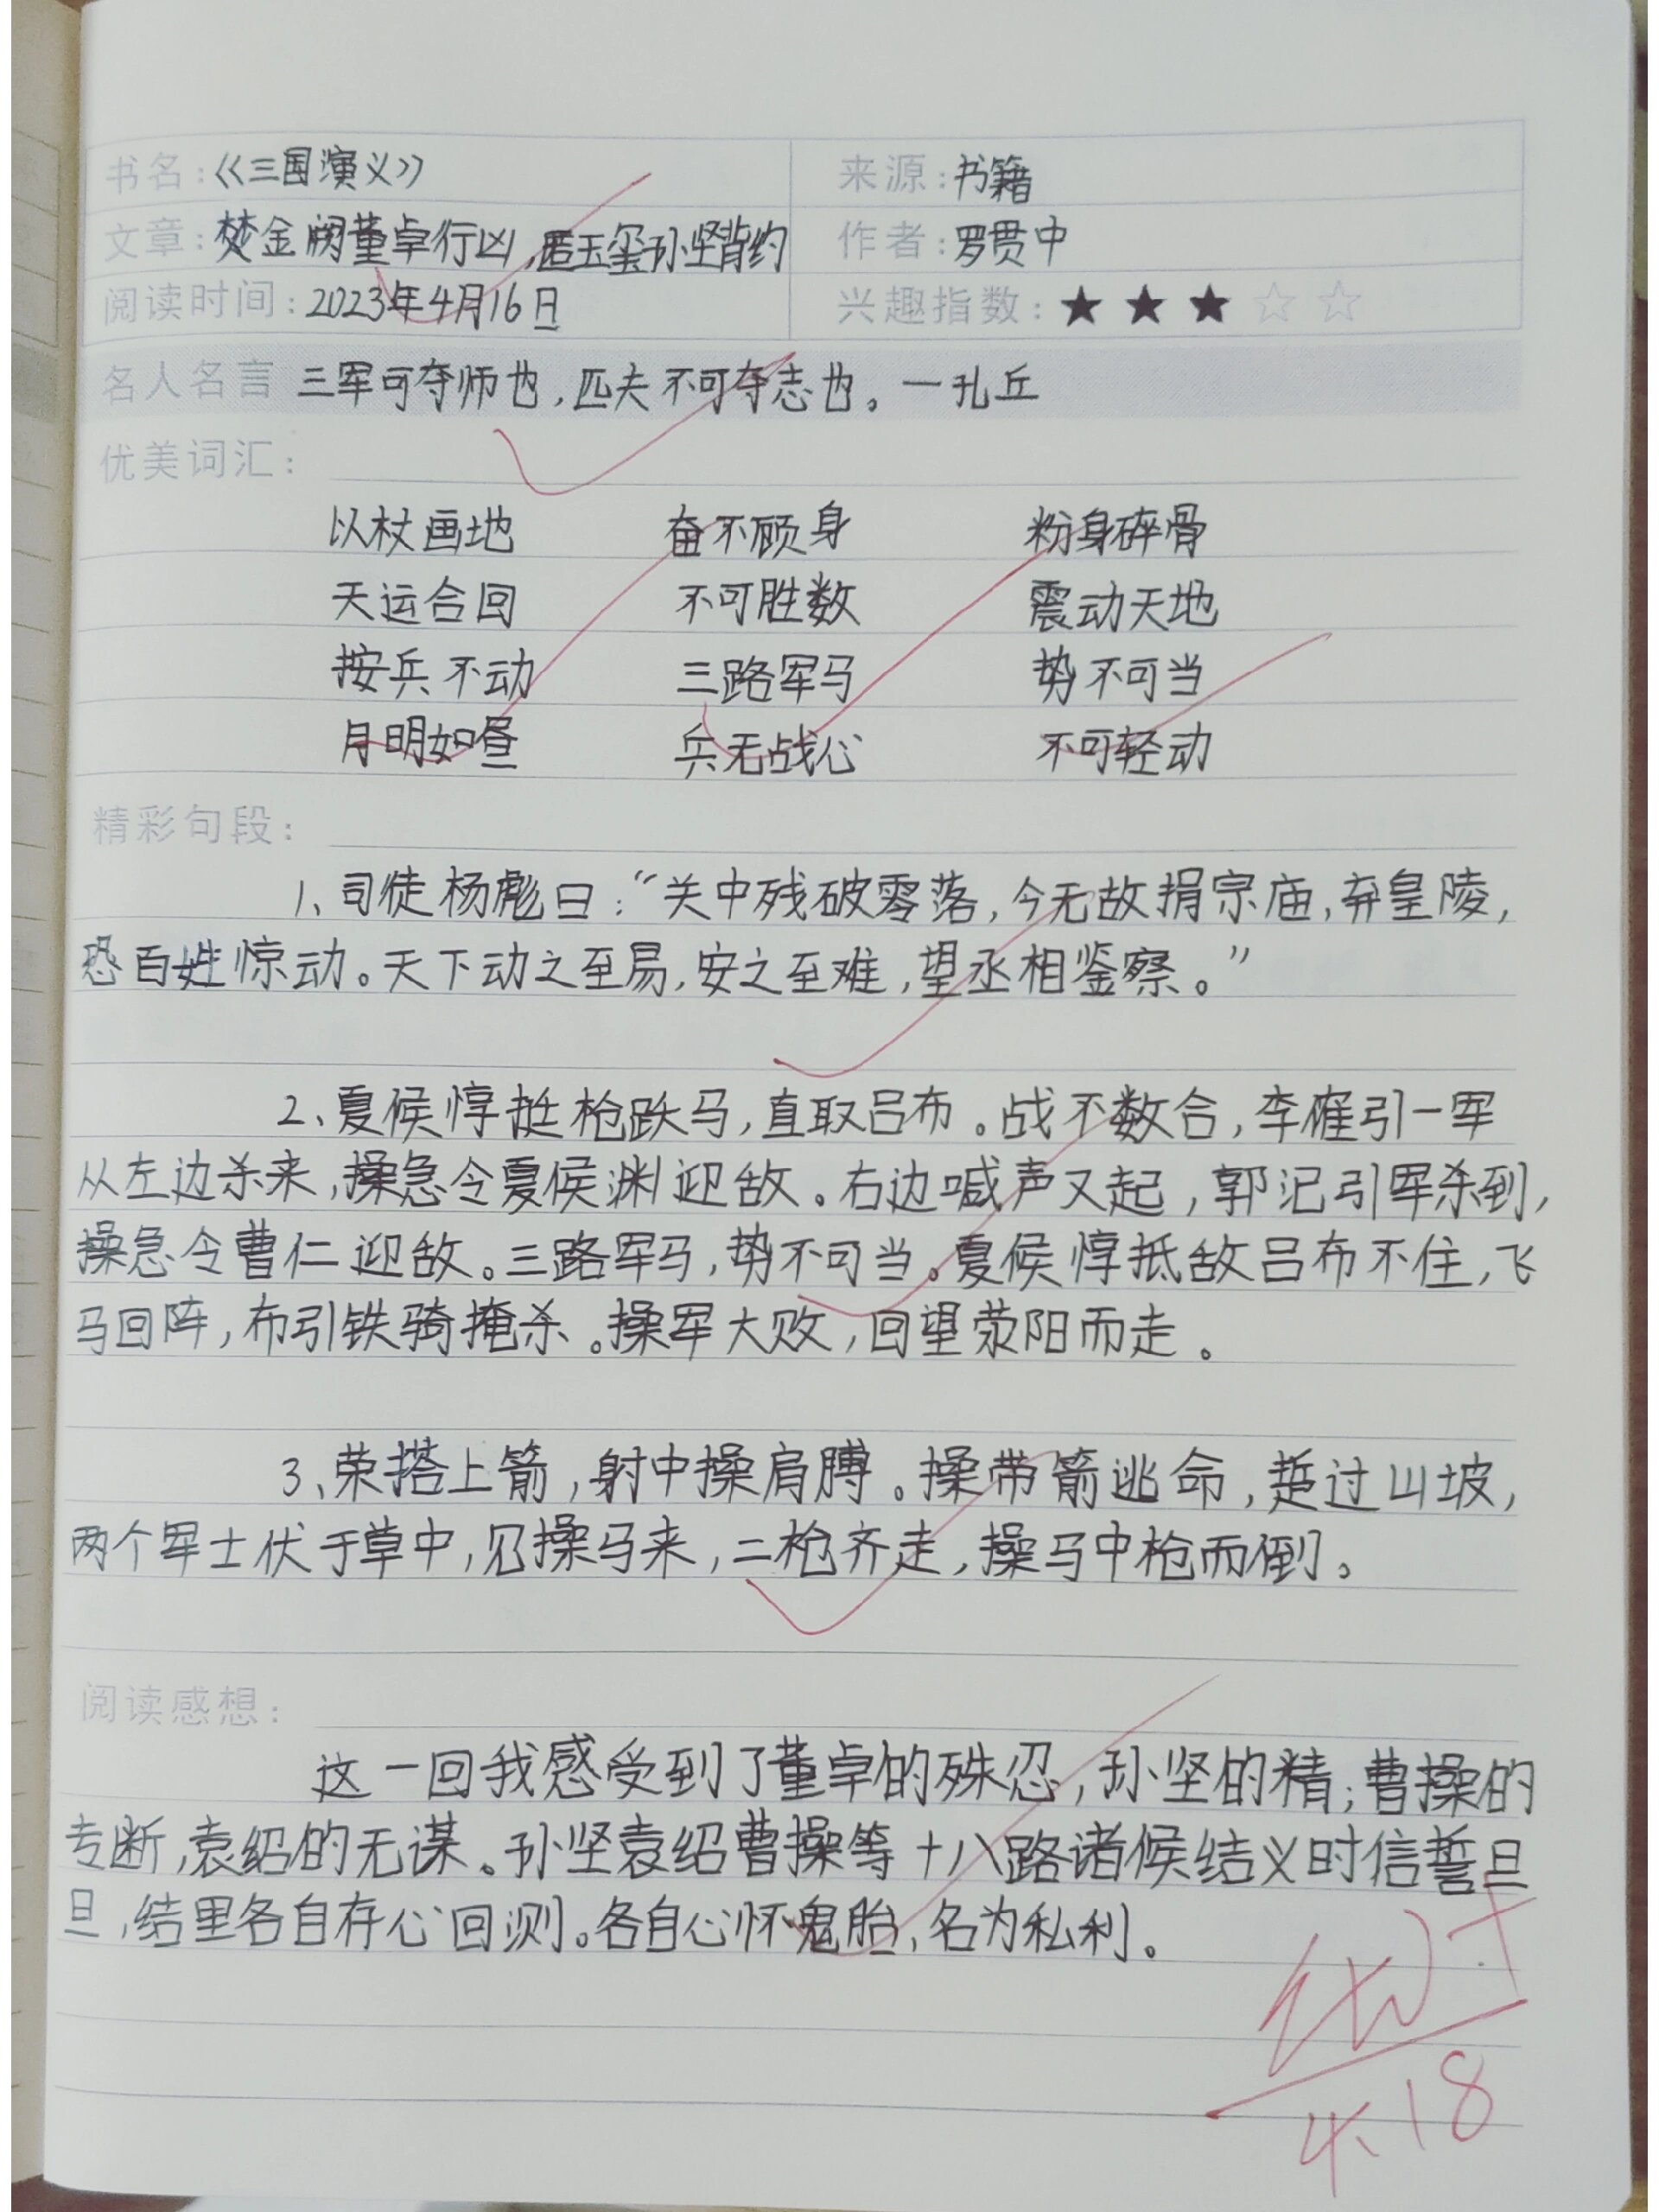 书名:《三国演义》 来源:书籍
文章:焚金阙董卓行凶,匿玉玺孙坚背约 作者:罗贯中
阅读时间:2023年4月16日 兴趣指数:★★★☆☆
名人名言 三军可夺师也,匹夫不可夺志也。一孔丘
优美词汇:
以杖画地 奋不顾身 粉身碎骨
天运合回 不可胜数 震动天地
按兵不动 三路军马 势不可当
月明如昼 兵无战心 不可轻动
精彩句段:
1、司徒杨彪曰:“关中残破零落,今无故捐宗庙,弃皇陵,
恐百姓惊动。天下动之至易,安之至难,望丞相鉴察。”
2、夏候惇挺枪跃马,直取吕布。战不数合,李傕引一军
从左边杀来,操急令夏侯渊迎敌。右边喊声又起,郭汜引军杀到,
操急令曹仁迎敌。三路军马,势不可当。夏候惇抵敌吕布不住,飞
马回阵,布引铁骑掩杀。操军大败,回望荥阳而走。
3、荣搭上箭,射中操肩膊。操带箭逃命,趓过山坡,
两个军士伏于草中,见操马来,二枪齐走,操马中枪而倒。
阅读感想:
这一回我感受到了董卓的殊忍,孙坚的精;曹操的
专断,袁绍的无谋。孙坚袁绍曹操等十八路诸候结义时信誓旦
旦,结里各自存心回测。各自心怀鬼胎,名为私利。
优+
4.18